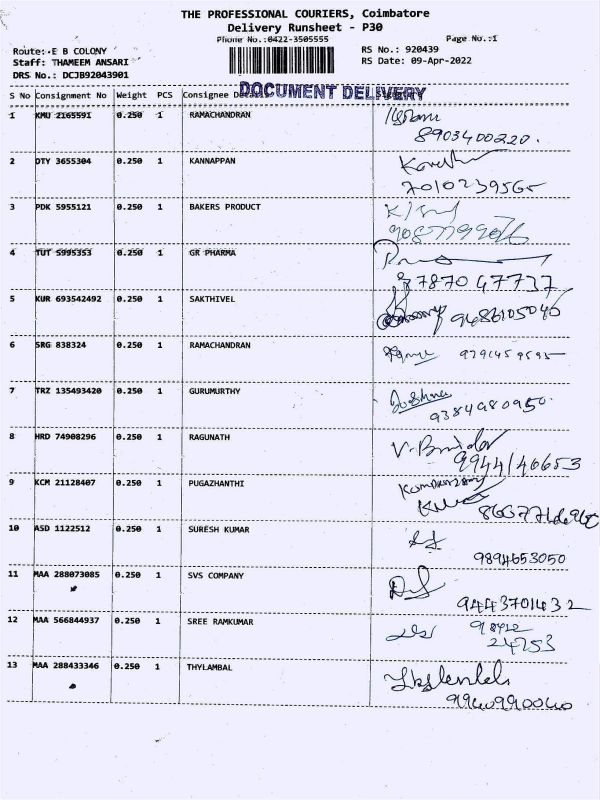 THE PROFESSIONAL COURIERS, Coimbatore
Delivery Runsheet - P30
Phone No.:0422-3505555
Page No.:1
Route: E B COLONY
RS No.: 920439
Staff: THAMEEM ANSARI
RS Date: 09-Apr-2022
DRS No.: DCJB92043901
DOCUMENT DELIVERY
S No Consignment No Weight PCS Consignee
1 KMU 2165591 0.250 1 RAMACHANDRAN
8903400220.
2 DTY 3655304 0.250 1 KANNAPPAN
7010239565
3 PDK 5955121 0.250 1 BAKERS PRODUCT
4 TUT 5995353 0.250 1 GR PHARMA
7871047737
5 KUR 693542492 0.250 1 SAKTHIVEL
9486105040
6 SRG 838324 0.250 1 RAMACHANDRAN
9791459595
7 TRZ 135493420 0.250 1 GURUMURTHY
9384980950.
8 HRD 74908296 0.250 1 RAGUNATH
9944146653
9 KCM 21128407 0.250 1 PUGAZHANTHI
10 ASD 1122512 0.250 1 SURESH KUMAR
9894653050
11 MAA 288073085 0.250 1 SVS COMPANY
9443701432
12 MAA 566844937 0.250 1 SREE RAMKUMAR
98422
24753
13 MAA 288433346 0.250 1 THYLAMBAL
9940990040